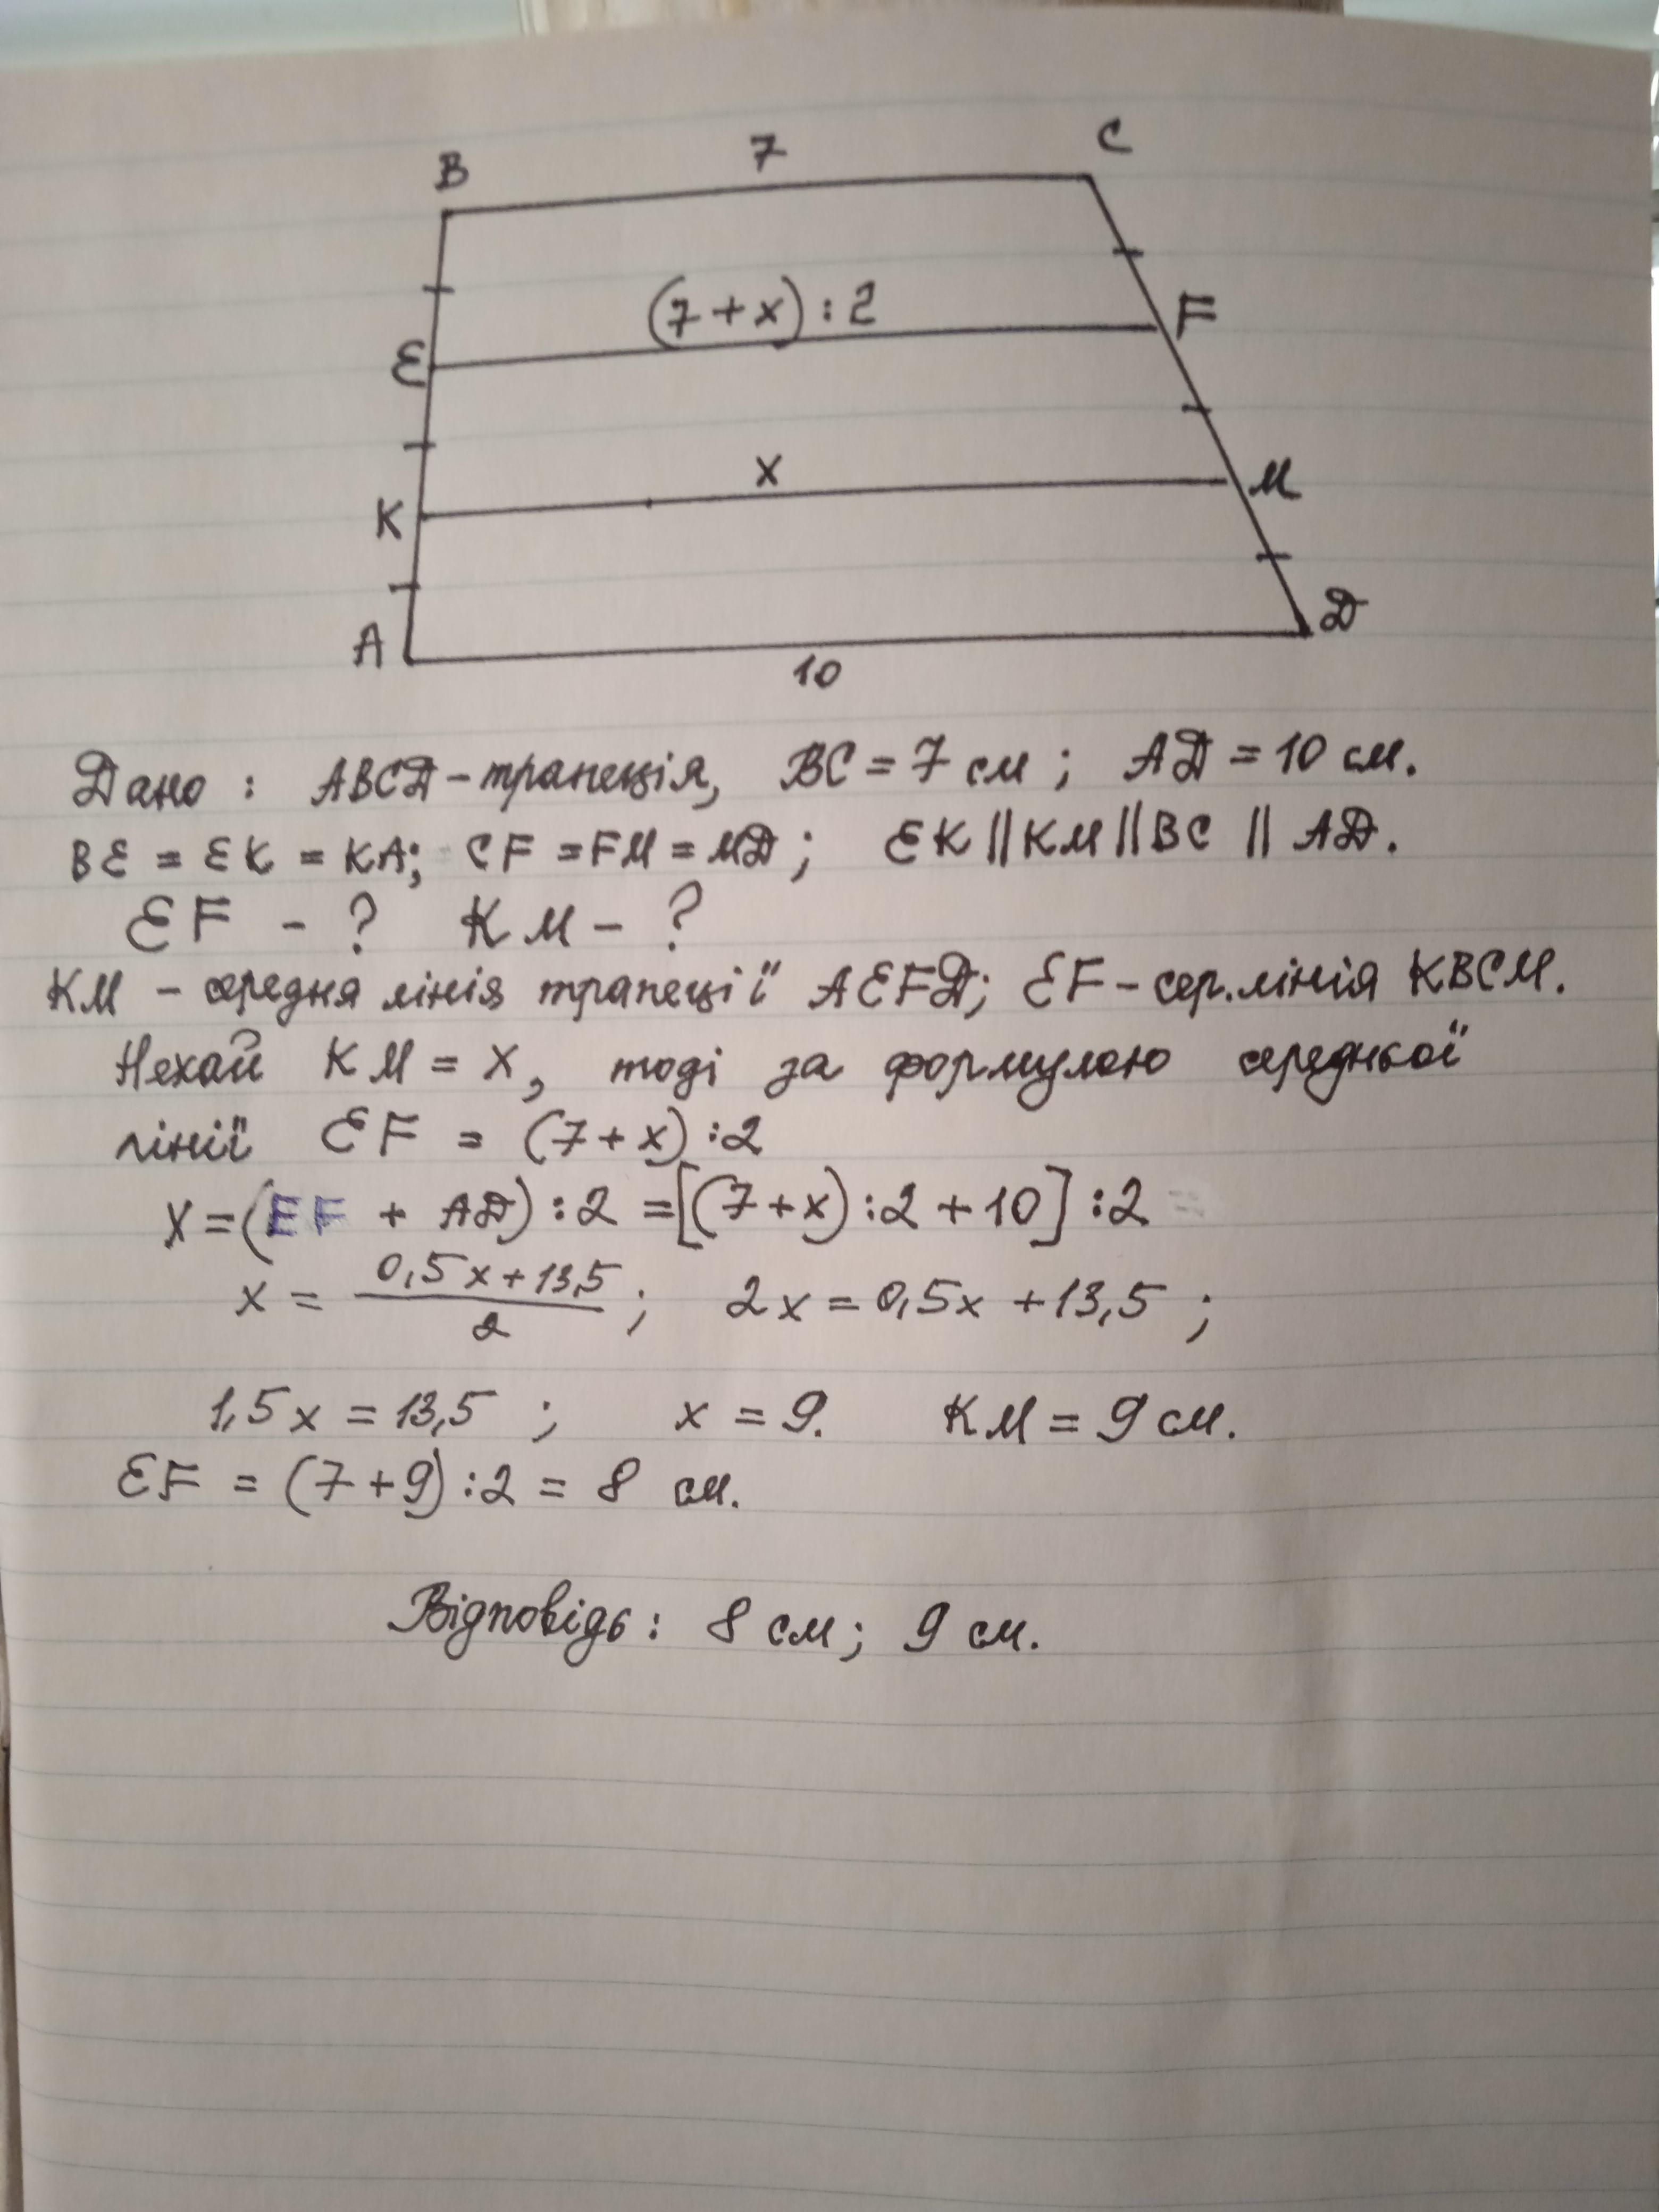 B 7 C
(7+x):2 F
E
x
K M
A Д
10
Дано: ABCД-трапеція, BC=7 см; AД=10 см.
BE = EK = KA; CF =FM=MД; EK||KM||BC || AД.
EF - ? KM - ?
KM - середня лінія трапеції AEFД; EF-сер.лінія KBCM.
Нехай KM = x, тоді за формулою середньої
лінії EF = (7+x):2
x=(EF + AД):2 =[(7+x):2+10]:2 =
x = (0,5x+13,5)/2; 2x=0,5x+13,5;
1,5x=13,5; x=9. KM=9 см.
EF = (7+9):2= 8 см.
Відповідь: 8 см; 9 см.